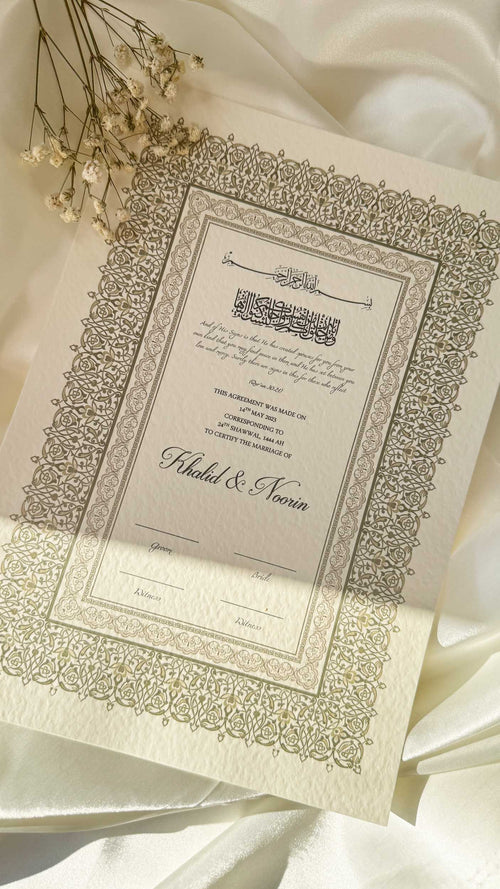 بسم الله الرحمن الرحيم
And of His Signs is that He has created spouses for you from your
own kind that you may find peace in them, and He has set between you
love and mercy. Surely there are signs in this for those who reflect
(Qur'an 30:21)
THIS AGREEMENT WAS MADE ON
14TH MAY 2023
CORRESPONDING TO
24TH SHAWWAL, 1444 AH
TO CERTIFY THE MARRIAGE OF
Khalid & Noorin
Groom
Bride
Witness
Witness